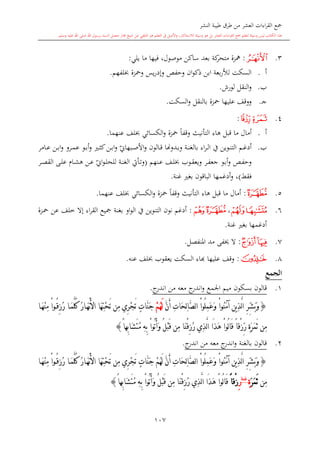 جمع القراءات العشر من طرق طيبة النشر
٣. ﴿ٱلۡأَنۡهَٰرُ﴾: همزة متحركة بعد ساكن موصول، فيها ما يلي:
أ. السكت للأربعة ابن ذكوان وحفص وإدريس وحمزة بخلفهم.
ب. والنقل لورش.
ج. ووقف عليها حمزة بالنقل والسكت.
٤. ﴿ثَمَرَةٖ رِّزۡقٗا﴾:
أ. أمال ما قبل هاء التأنيث وقفاً حمزة والكسائي بخلف عنهما.
ب. أدغم التنوين في الراء بالغنة وبدونها قالون والأصبهاني وابن كثير وأبو عمرو وابن عامر
وحفص وأبو جعفر ويعقوب بخلف عنهم (وتأتي الغنة للحلواني عن هشام على القصر
فقط)، وأدغمها الباقون بغير غنة.
٥. ﴿مُّطَهَّرَةٞ﴾: أمال ما قبل هاء التأنيث وقفاً حمزة والكسائي بخلف عنهما.
٦. ﴿مُتَشَٰبِهٗاۖ وَلَهُمۡ﴾، ﴿مُّطَهَّرَةٞۖ وَهُمۡ﴾: أدغم نون التنوين في الواو بغنة جميع القراء إلا خلف عن حمزة
أدغمها بغير غنة.
٧. ﴿فِيهَآ أَزۡوَٰجٞ﴾: لا يخفى مد المنفصل.
٨. ﴿خَٰلِدُونَ﴾: وقف عليها بهاء السكت يعقوب بخلف عنه.
الجمع
١. قالون بسكون ميم الجمع واندرج معه من اندرج.
﴿ وَبَشِّرِ ٱلَّذِينَ ءَامَنُواْ وَعَمِلُواْ ٱلصَّٰلِحَاتِ أَنَّ لَهُمۡ جَنَّٰتٖ تَجۡرِي مِن تَحۡتِهَا ٱلۡأَنۡهَٰرُ كُلَّمَا رُزِقُواْ مِنۡهَا
مِن ثَمَرَةٖ رِّزۡقٗا قَالُواْ هَٰذَا ٱلَّذِي رُزِقۡنَا مِن قَبۡلُ وَأُتُواْ بِهِۦ مُتَشَٰبِهٗا ﴾
٢. قالون بالغنة واندرج معه من اندرج.
﴿ وَبَشِّرِ ٱلَّذِينَ ءَامَنُواْ وَعَمِلُواْ ٱلصَّٰلِحَاتِ أَنَّ لَهُمۡ جَنَّٰتٖ تَجۡرِي مِن تَحۡتِهَا ٱلۡأَنۡهَٰرُ كُلَّمَا رُزِقُواْ مِنۡهَا
مِن ثَمَرَةٖ رِّزۡقٗا قَالُواْ هَٰذَا ٱلَّذِي رُزِقۡنَا مِن قَبۡلُ وَأُتُواْ بِهِۦ مُتَشَٰبِهٗا ﴾
١٠٧